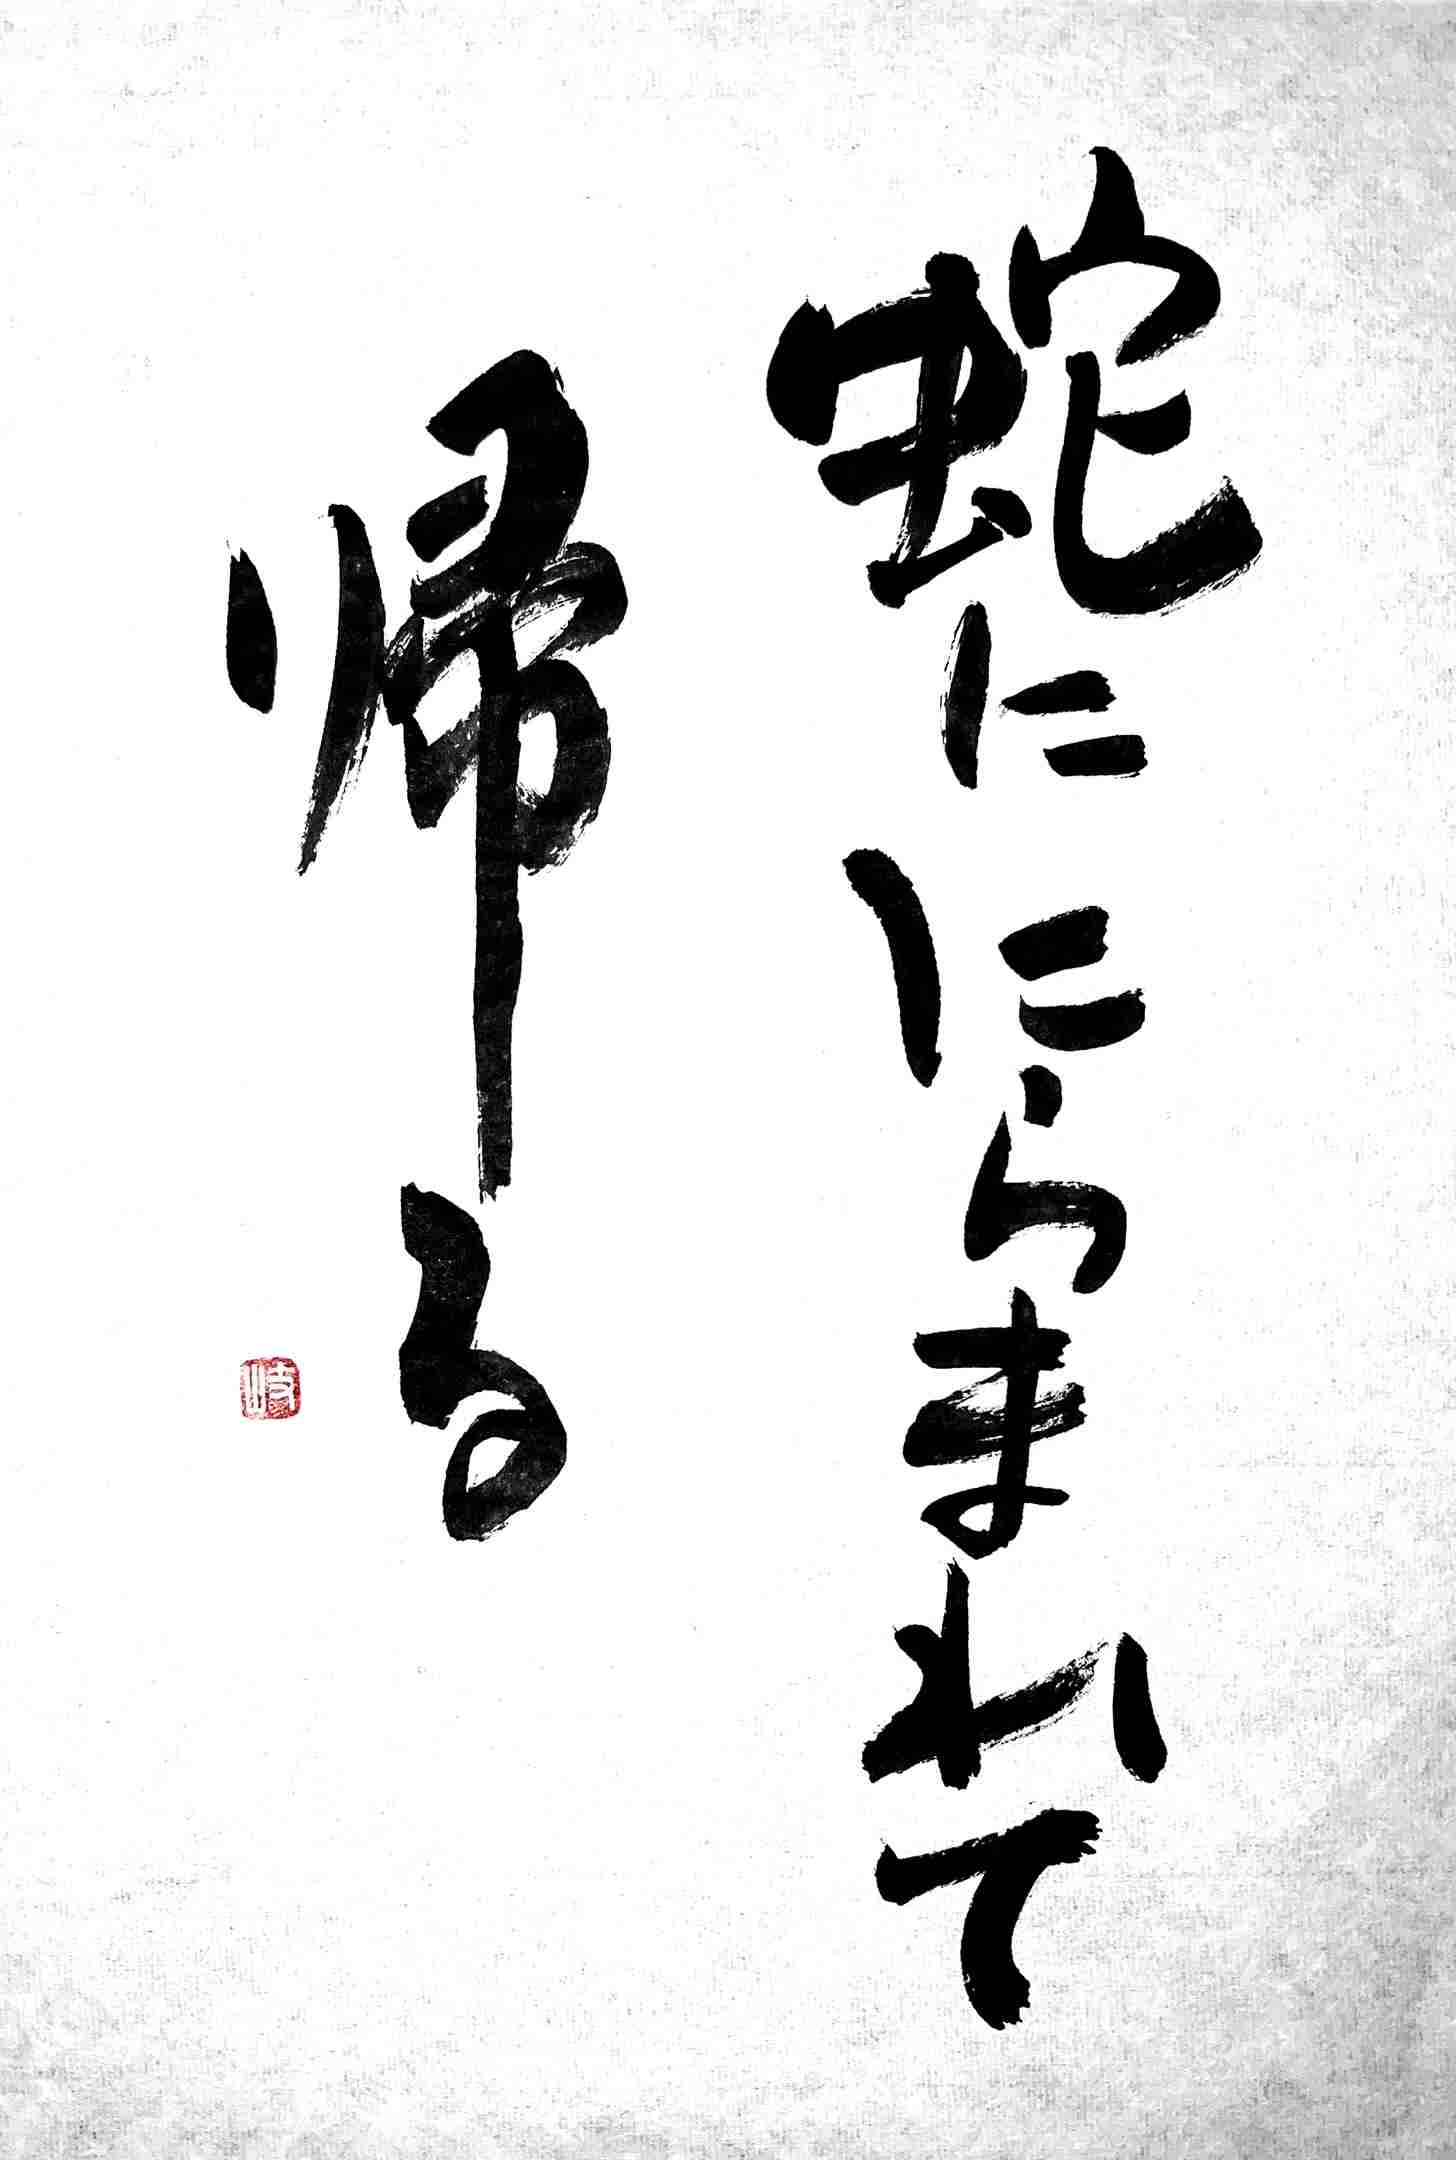 蛇ににらまれて
帰る
岐